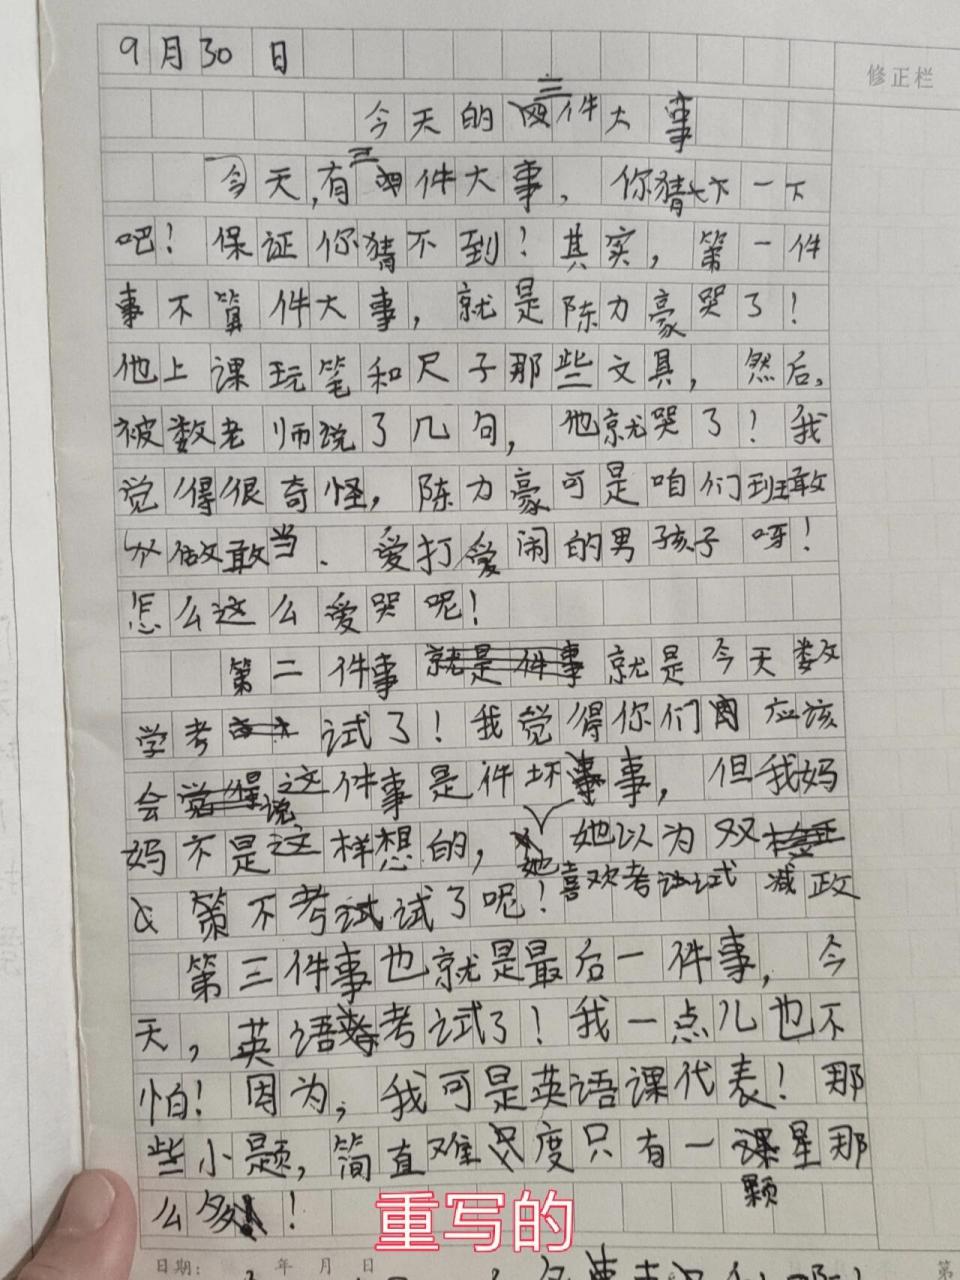 9月30日
修正栏
今天的三件大事
今天,有三件大事,你猜一下
吧!保证你猜不到!其实,第一件
事不算件大事,就是陈力豪哭了!
他上课玩笔和尺子那些文具,然后,
被数老师说了几句,他就哭了!我
觉得很奇怪,陈力豪可是咱们班敢
做敢当.爱打爱闹的男孩子呀!
怎么这么爱哭呢!
第二件事就是今天数
学考试了!我觉得你们应该
会说这件事是件坏事,但我妈
妈不是这样想的,她以为双减政
策不考试了呢!她喜欢考试
第三件事也就是最后一件事,今
天,英语考试了!我一点儿也不
怕!因为,我可是英语课代表!那
些小题,简直难度只有一颗星那
么多!
重写的
日期: 年 月 日
第